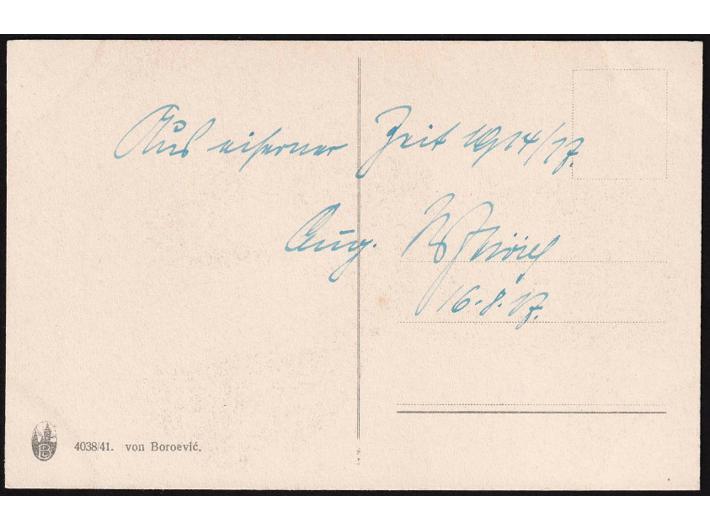 Aus eiserner Zeit 1914/17.
Aug.
16.8.17.
4038/41. von Boroević.